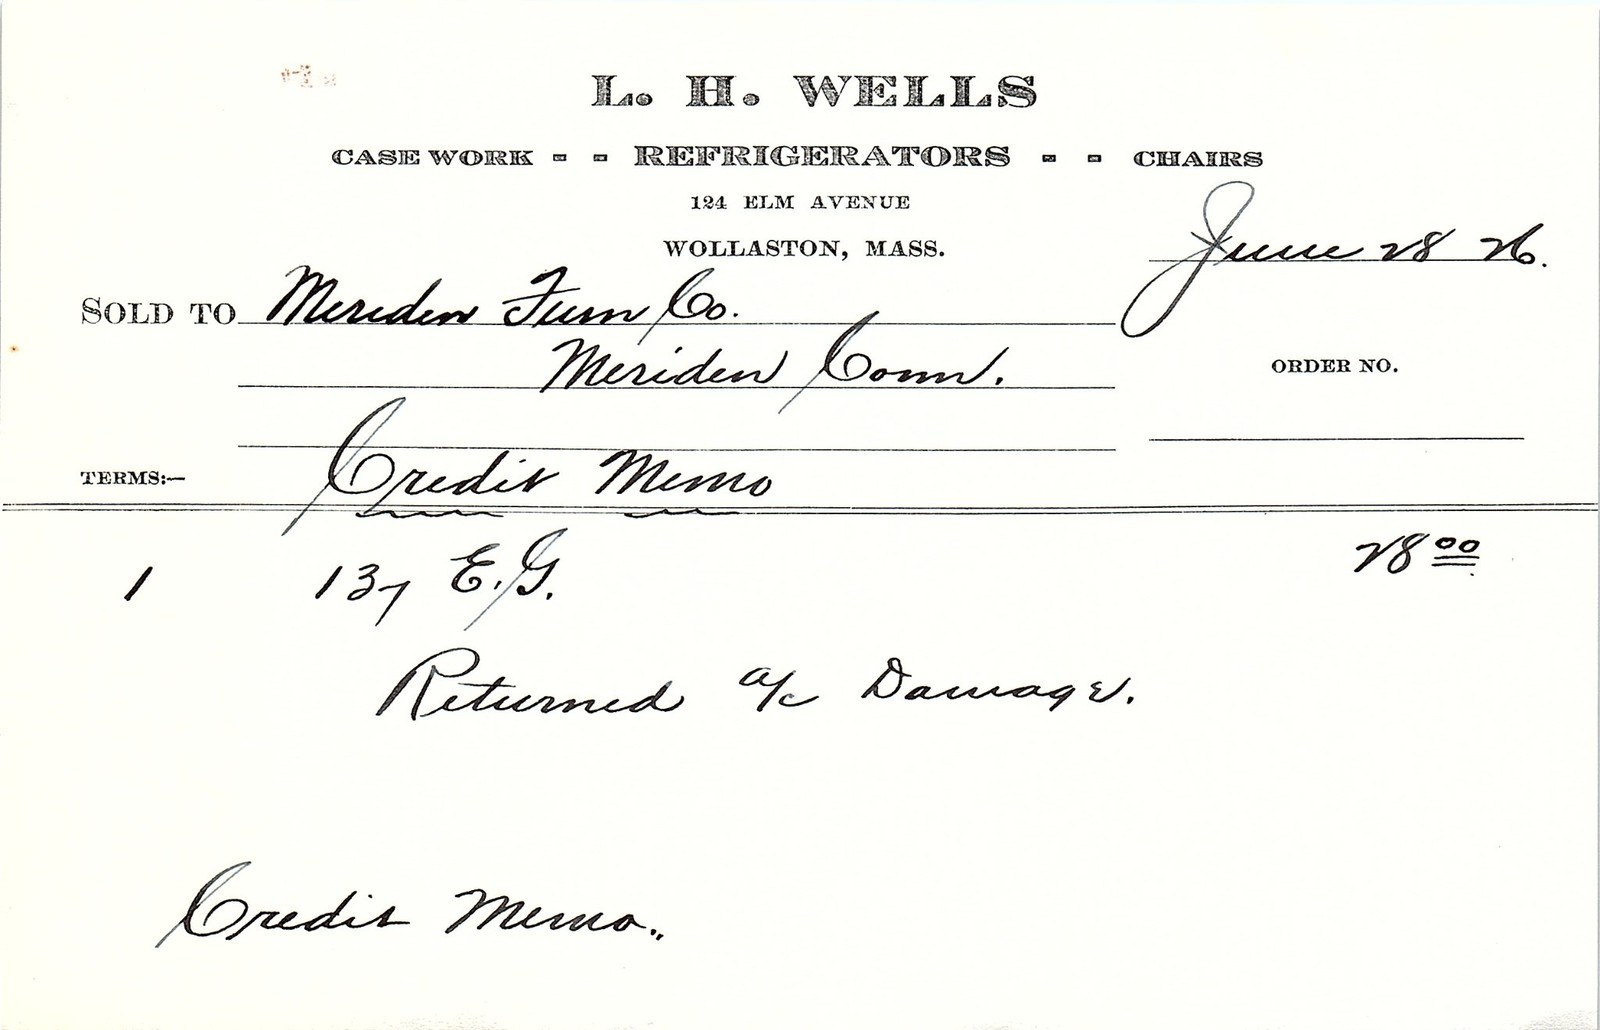 L. H. WELLS
CASE WORK - - REFRIGERATORS - - CHAIRS
124 ELM AVENUE
WOLLASTON, MASS.
June 28 26.
SOLD TO Meriden Furn Co.
Meriden Conn.
ORDER NO.
TERMS:— Credit Memo
1 137 E.G. 28 00
Returned a/c Damage.
Credit Memo..